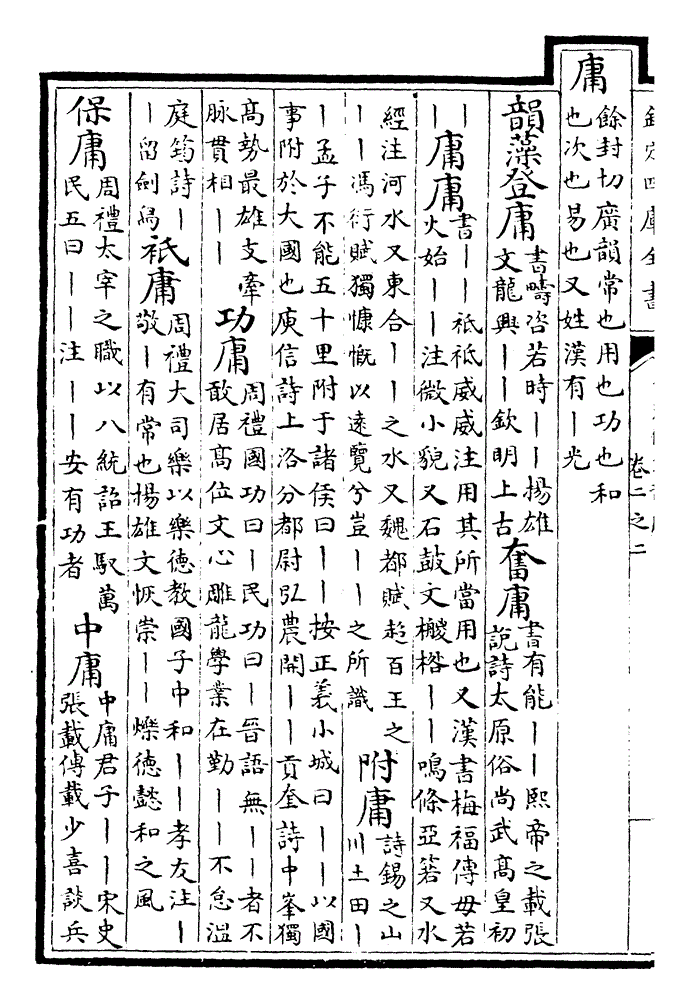 欽定四庫全書
卷二之二
庸
餘封切廣韻常也用也功也和
也次也易也又姓漢有｜光
韻藻登庸
書疇咨若時｜｜揚雄
文龍興｜｜欽明上古
奮庸
書有能｜｜熙帝之載張
說詩太原俗尚武高皇初
｜｜
庸庸
書｜｜祗祗威威注用其所當用也又漢書梅福傳毋若
火始｜｜注微小貌又石鼓文｜｜鳴條亞箬又水
經注河水又東合｜｜之水又魏都賦超百王之
｜｜馮衍賦獨慷慨以遠覽兮豈｜｜之所識
附庸
詩錫之山
川土田｜
｜孟子不能五十里附于諸侯曰｜｜按正義小城曰｜｜以國
事附於大國也庾信詩上洛分都尉弘農開｜｜貢奎詩中峯獨
高勢最雄支牽
脉貫相｜｜
功庸
周禮國功曰｜民功曰｜晉語無｜｜者不
敢居高位文心雕龍學業在勤｜｜不怠溫
庭筠詩｜
｜留劍舄
祇庸
周禮大司樂以樂德教國子中和｜｜孝友注｜
敬｜有常也揚雄文恢崇｜｜爍德懿和之風
保庸
周禮太宰之職以八統詔王馭萬
民五曰｜｜注｜｜安有功者
中庸
中庸君子｜｜宋史
張載傳載少喜談兵